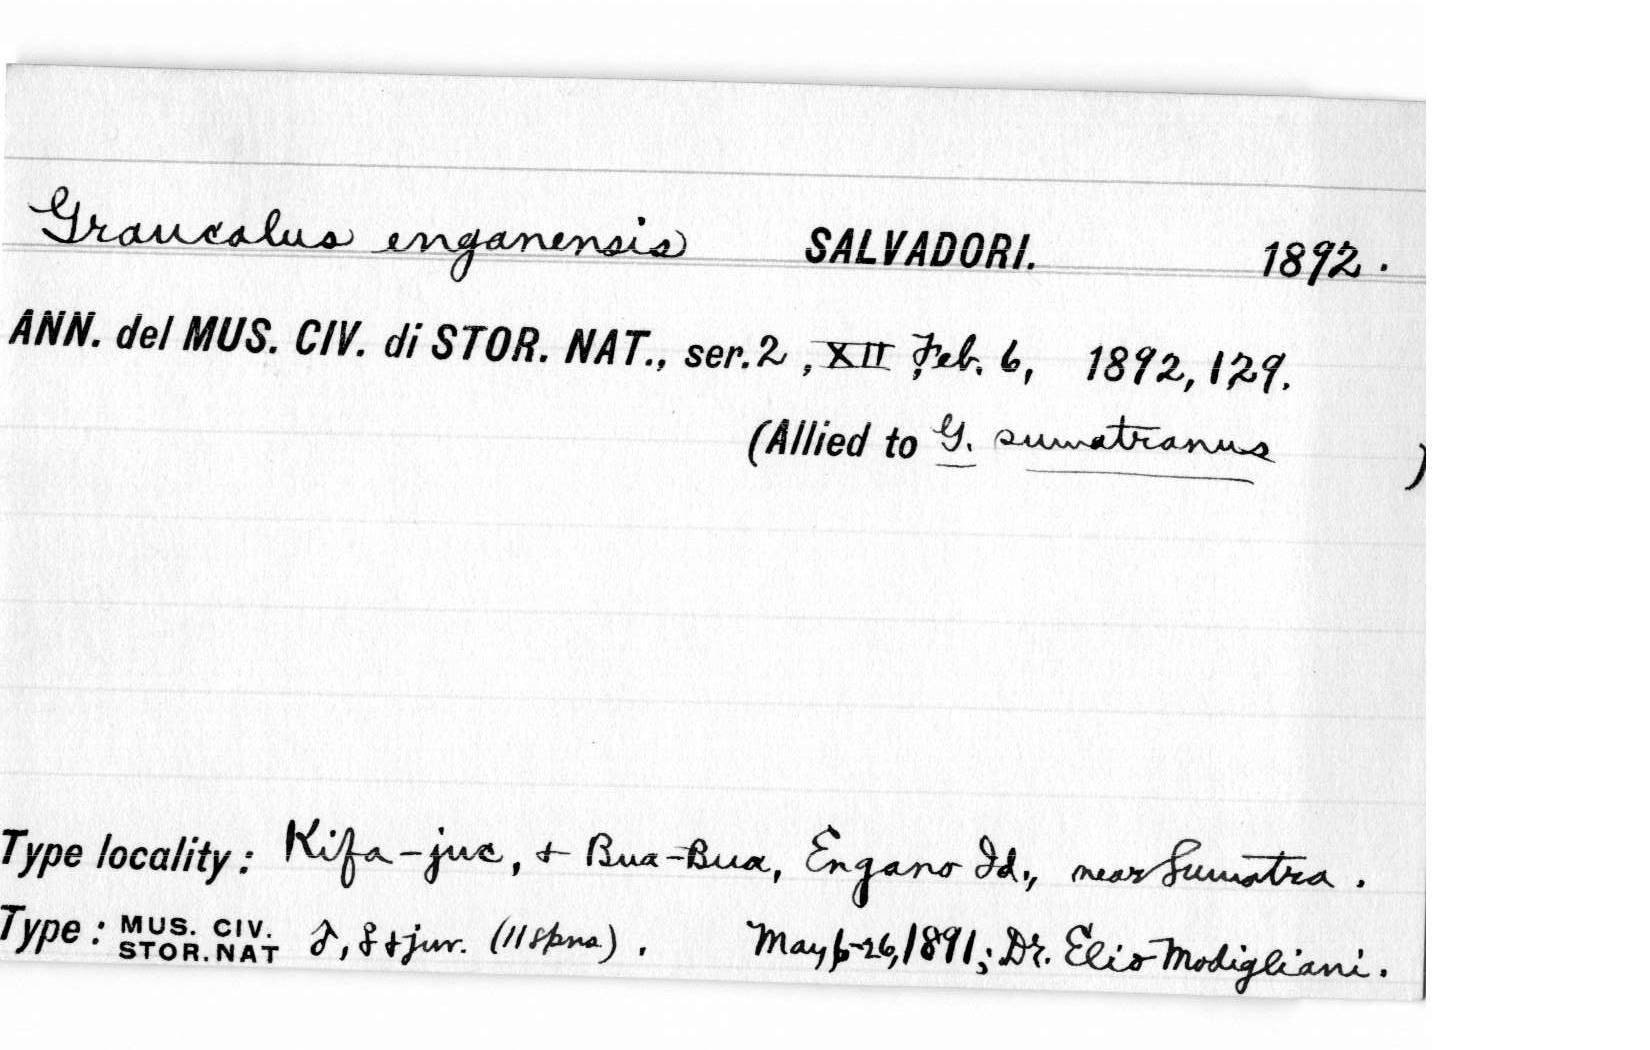 Graucalus enganensis SALVADORI. 1892.
ANN. del MUS. CIV. di STOR. NAT., ser. 2, XII Feb. 6, 1892, 129.
(Allied to G. sumatranus )
Type locality: Kifa-juc, + Bua-Bua, Engano Id., near Sumatra.
Type: MUS. CIV. STOR. NAT ♂, ♀ + juv. (11 spns). May 6-26, 1891; Dr. Elio Modigliani.